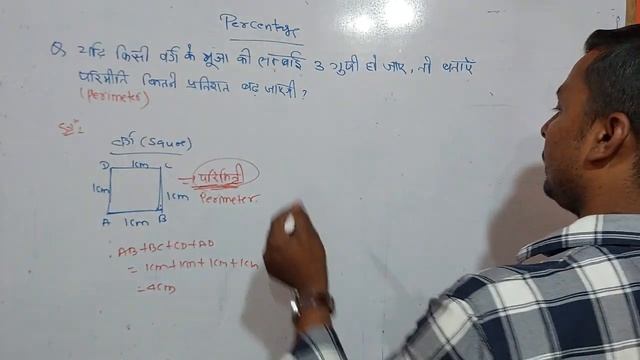 Percentage
Q. यदि किसी वर्ग के भुजा की लम्बाई 3 गुणी हो जाए, तो बताएँ
परिमीति कितने प्रतिशत बढ़ जाएगी ?
(Perimeter)
Solⁿ:
वर्ग (Sqaure)
D 1cm C
1cm 1cm
A 1cm B
→ परिमिती
Perimeter.
AB+BC+CD+AD
= 1cm+1cm+1cm+1cm
= 4cm